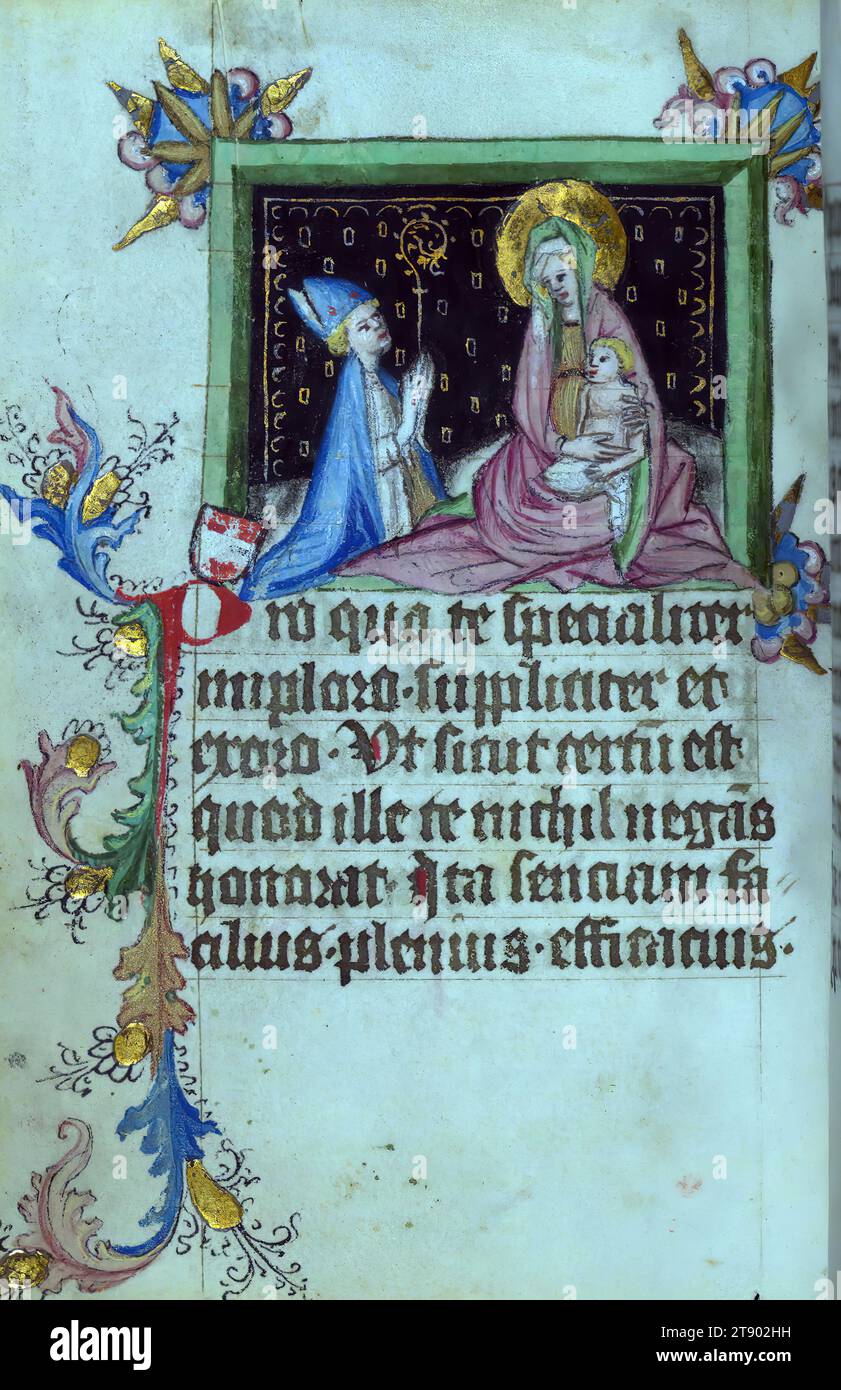 Pro qua te specialiter
imploro · suppliciter et
exoro · Vt sicut certū est
quod ille te nichil negās
honorat · Ita senciam fa
cilius · plenius · efficacius ·
alamy
Image ID: 2T902HH
www.alamy.com